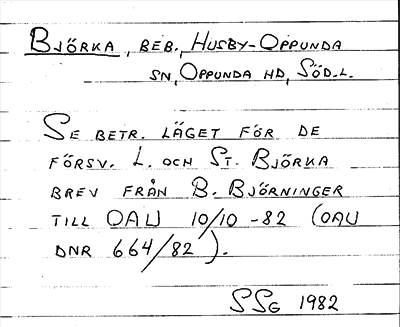 Björka, beb., Husby-Oppunda
sn, Oppunda hd, Söd.l.
Se betr. läget för de
försv. L. och St. Björka
brev från B. Björninger
till OAU 10/10 -82 (OAU
dnr 664/82).
SSG 1982